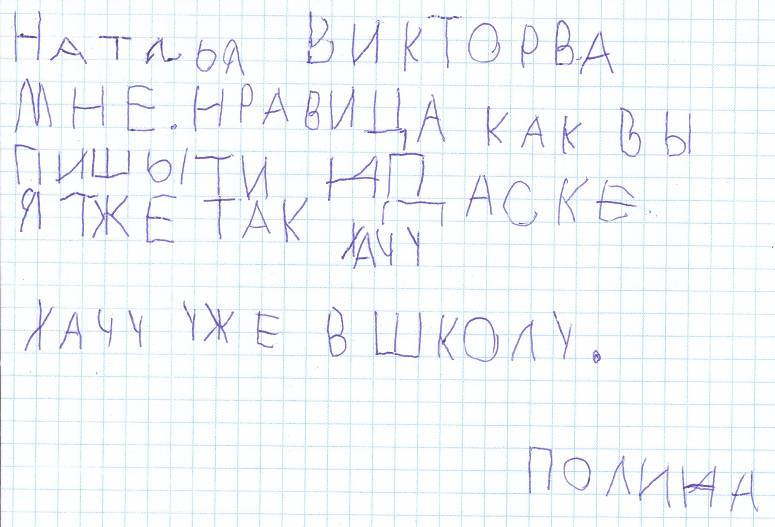 Наталья ВИКТОРВА
МНЕ.НРАВИЦА КАК ВЫ
ПИШЫТИ НА ДАСКЕ.
Я ТЖЕ ТАК
ХАЧУ
ХАЧУ УЖЕ В ШКОЛУ.
ПОЛИНА